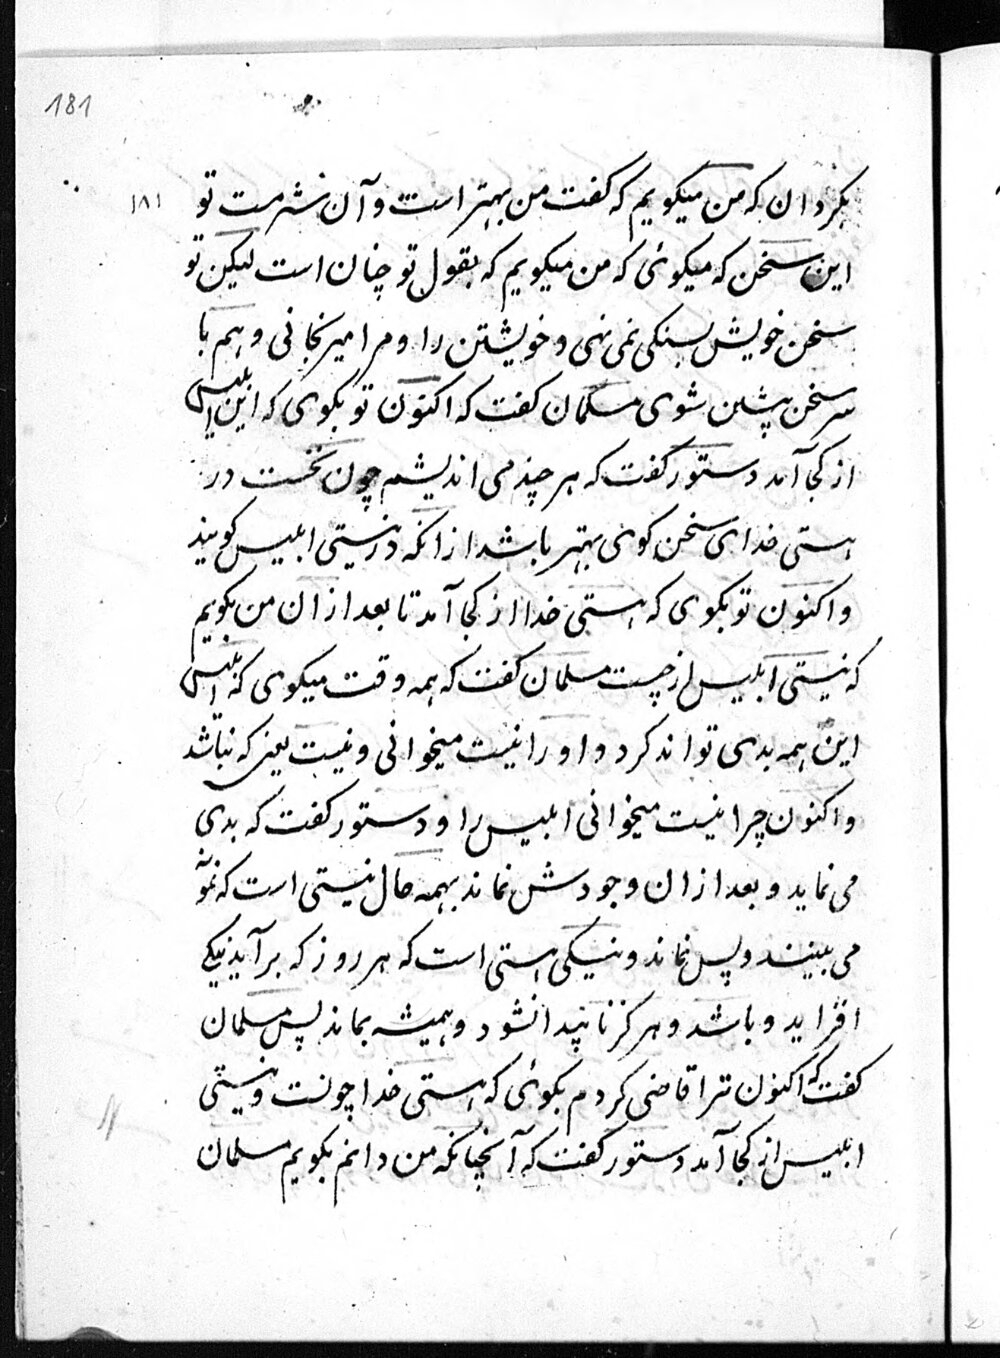 181
۱۸۱
بگردان که من میگویم که گفت من بهتر است و آن نشرمت تو
این سخن که میگوئی که من میگویم که بقول تو چنان است لیکن تو
سخن خویش بسنگی نمی نهی و خویشتن را و مرا میرنجانی و هم با
سر سخن پیشین شوی مسلمان گفت که اکنون تو بگوی که این ابلیس
از کجا آمد دستور گفت که هر چند می اندیشم چون نخست در
هستی خدای سخن گوی بهتر باشد ازانکه در نیستی ابلیس گویند
و اکنون تو بگوی که هستی خدا از کجا آمد تا بعد ازان من بگویم
که نیستی ابلیس از چیست مسلمان گفت که همه وقت میگوی که ابلیس
این همه بدی تواند کرد و او را نیست میخوانی و نیست یعنی که نباشد
و اکنون چرا نیست میخوانی ابلیس را و دستور گفت که بدی
می نماید و بعد ازان وجودش نماند بهمه حال نیستی است که نمونه
می بینند و پس نماند و نیکی هستی است که هر روز که برآید نیکی
افزاید و باشد و هرگز ناپیدا نشود و همیشه بماند پس مسلمان
گفت که اکنون ترا قاضی کردم بگوئی که هستی خدا چونست و نیستی
ابلیس از کجا آمد دستور گفت که آنچنانکه من دانم بگویم مسلمان